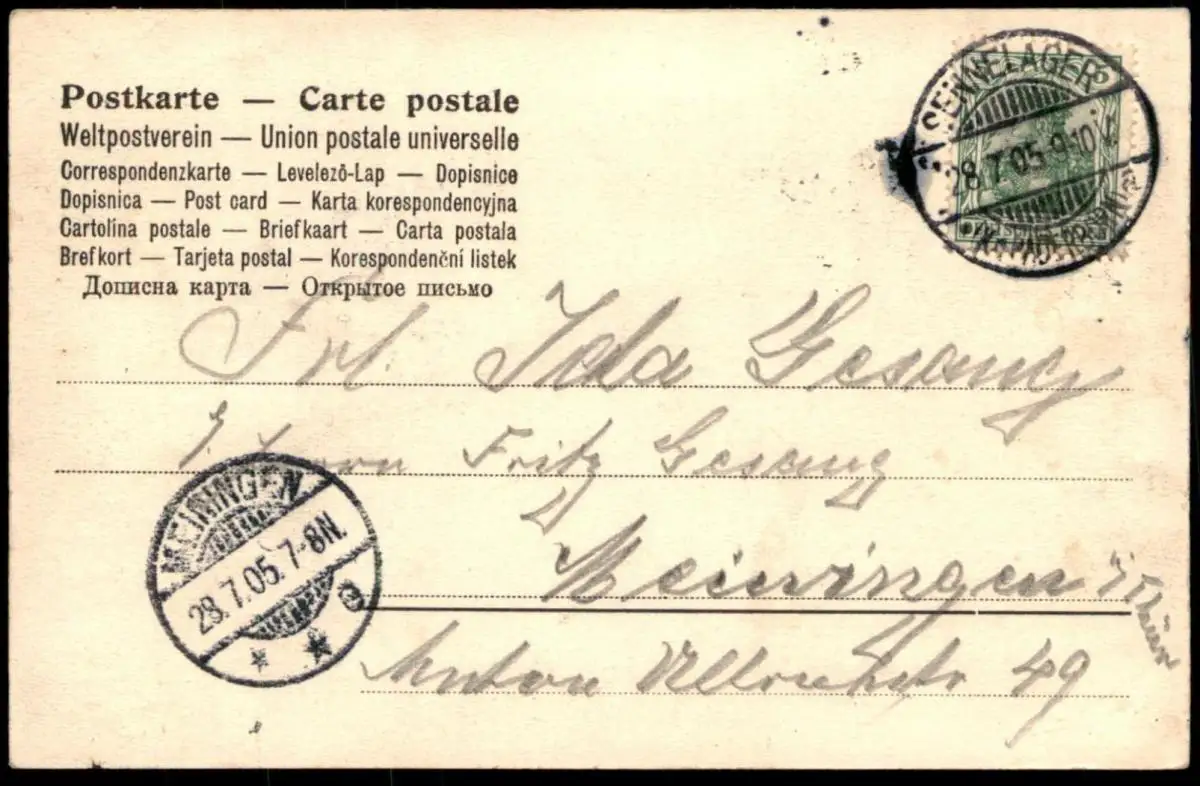 Postkarte — Carte postale
Weltpostverein — Union postale universelle
Correspondenzkarte — Levelező-Lap — Dopisnice
Dopisnica — Post card — Karta korespondencyjna
Cartolina postale — Briefkaart — Carta postala
Brefkort — Tarjeta postal — Korespondenční listek
Дописна карта — Открытое письмо
SENNELAGER
28.7.05.9-10V.
Frl. Ida Gesang
Herrn Fritz Gesang
Meiningen
MEININGEN
28.7.05.7-8N.
Anton Ulrichstr 49